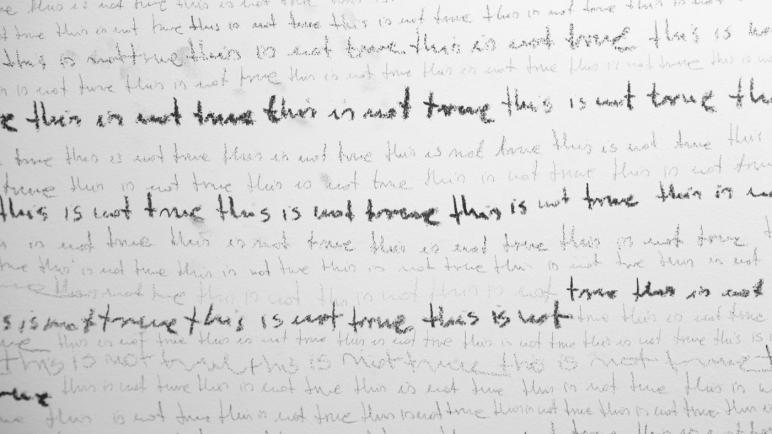 this is not true this is not true this is not true
true this is not true this is not true this is not true this is not true this is
this is not true this is not true this is not true this is
is not true this is not true this is not true this is not true this is not true
this is not true this is not true this is not true
true this is not true this is not true this is not true this is not true this
true this is not true this is not true this is not true this is not true
this is not true this is not true this is not true this is
is not true this is not true this is not true this is not true
this is not true this is not true this is not true this is not true this is not
this is not true this is not this is not true this is not true this is not
is not true this is not true this is not true this is not true
this is not true this is not true this is not true this is not true this is not true this is
this is not true this is not true this is not true
true this is not true this is not true this is not true this is not true this is
this is not true this is not true this is not true this is not true this is not true this